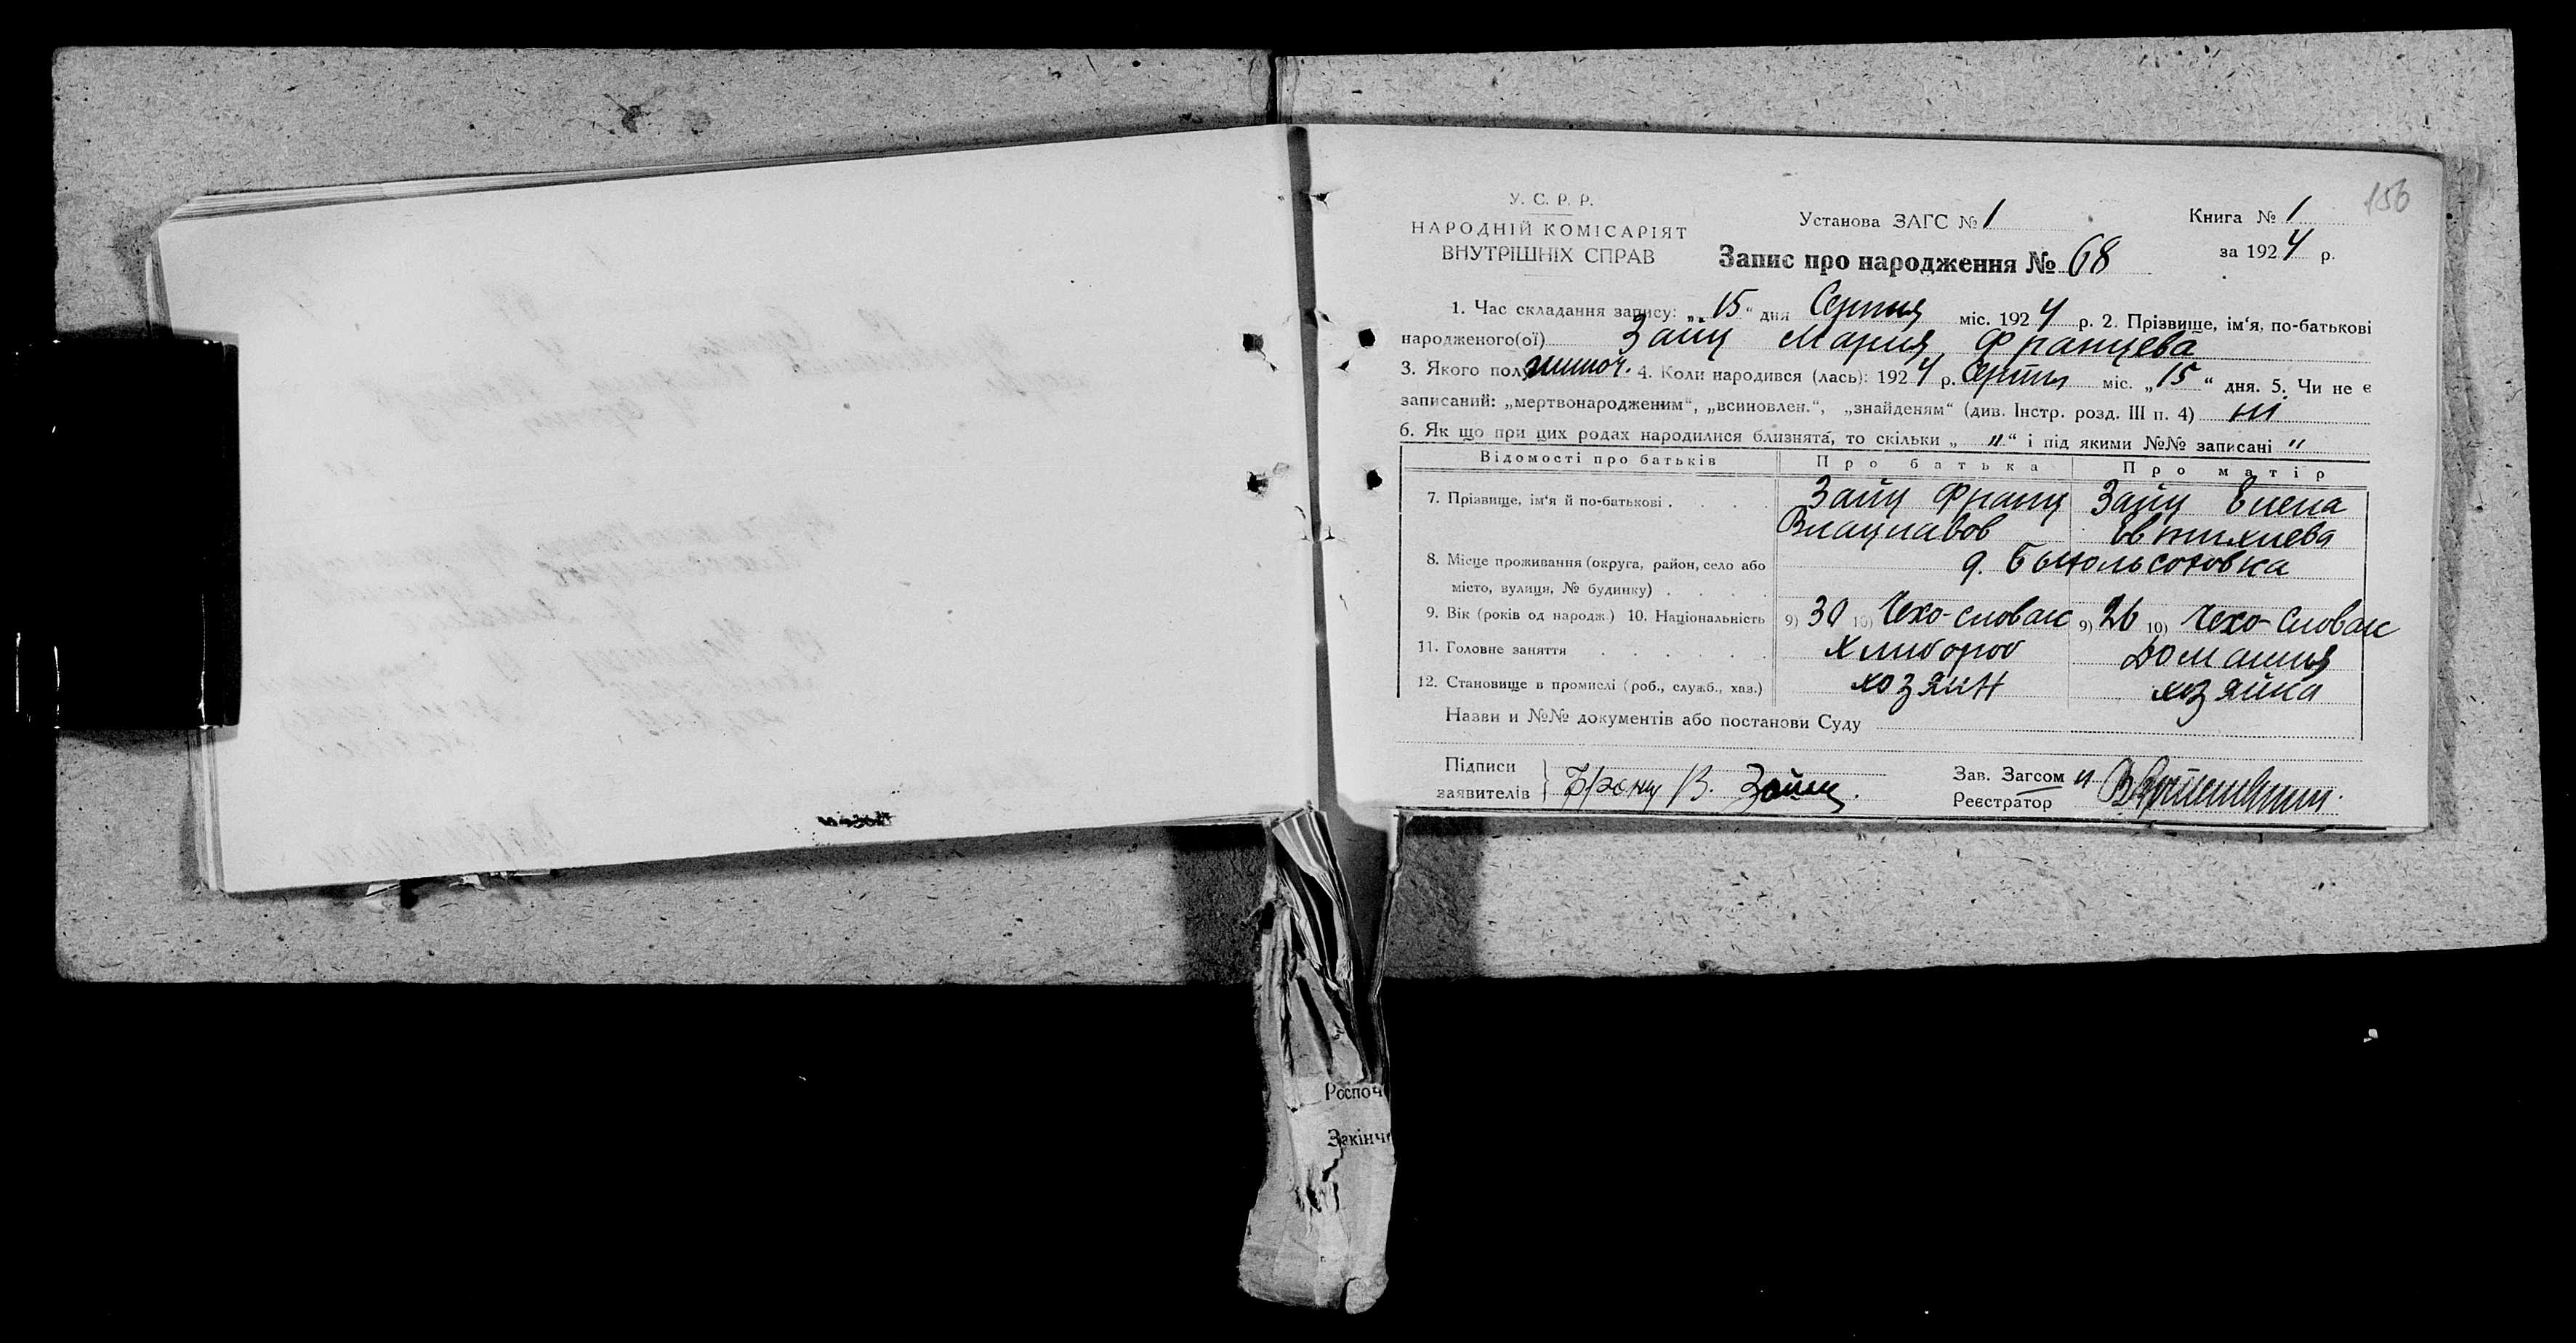 156
У. С. Р. Р.
НАРОДНІЙ КОМІСАРІЯТ
ВНУТРІШНІХ СПРАВ
Установа ЗАГС № 1
Книга № 1
за 1924 р.
Запис про народження № 68
1. Час складання запису: „15“ дня Серпня міс. 1924 р. 2. Прізвище, ім'я, по-батькові
народженого(ої) Зайц Мария Францева
3. Якого полу жиноч. 4. Коли народився (лась): 1924 р. Серпня міс. „15“ дня. 5. Чи не є
записаний: „мертвонародженим“, „всиновлен.“, „знайденям“ (див. Інстр. розд. III п. 4) ні
6. Як що при цих родах народилися близнята, то скільки „ " “ і під якими №№ записані "
Відомості про батьків Про батька Про матір
7. Прізвище, ім'я й по-батькові . . . . Зайц Франц Зайц Елена
Влацлавов Евтихиева
8. Місце проживання (округа, район, село або д.
місто, вулиця, № будинку) . . . .
9. Вік (років од народж.) 10. Національність 9) 30 10) Чехо-словак 9) 26 10) Чехо-словак
11. Головне заняття . . . . . . Хлибороб Домашня
12. Становище в промислі (роб., служб., хаз.) хозяин хозяйка
Назви и №№ документів або постанови Суду
Підписи
заявителів Франц В. Зайц.
Зав. Загсом и
Реєстратор
Роспоч
Закінч